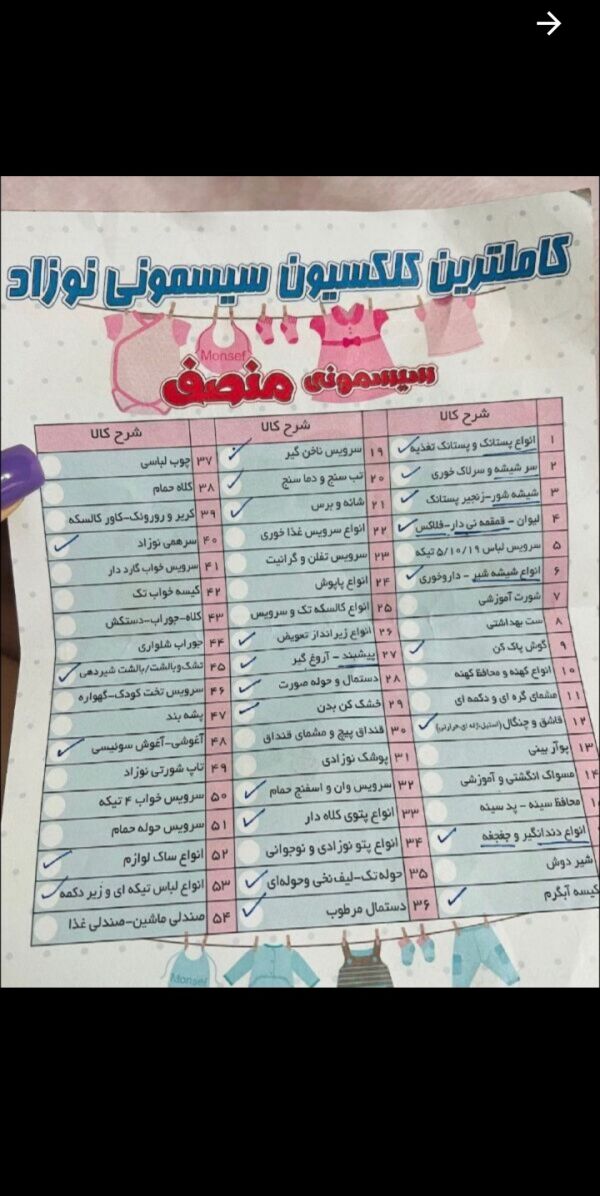 کاملترین کلکسیون سیسمونی نوزاد
Monsef
سیسمونی منصف
شرح کالا
۱ انواع پستانک و پستانک تغذیه
۲ سر شیشه و سرلاک خوری
۳ شیشه شور-زنجیر پستانک
۴ لیوان - قمقمه نی دار-فلاکس
۵ سرویس لباس ۵/۱۰/۱۹ تیکه
۶ انواع شیشه شیر - داروخوری
۷ شورت آموزشی
۸ ست بهداشتی
۹ گوش پاک کن
۱۰ انواع کهنه و محافظ کهنه
۱۱ مشمای گره ای و دکمه ای
۱۲ قاشق و چنگال (استیل-ژله ای-حرارتی)
۱۳ پوآر بینی
۱۴ مسواک انگشتی و آموزشی
محافظ سینه - پد سینه
انواع دندانگیر و جغجغه
شیر دوش
کیسه آبگرم
شرح کالا
۱۹ سرویس ناخن گیر
۲۰ تب سنج و دما سنج
۲۱ شانه و برس
۲۲ انواع سرویس غذا خوری
۲۳ سرویس تفلن و گرانیت
۲۴ انواع پاپوش
۲۵ انواع کالسکه تک و سرویس
۲۶ انواع زیرانداز تعویض
۲۷ پیشبند - آروغ گیر
۲۸ دستمال و حوله صورت
۲۹ خشک کن بدن
۳۰ قنداق پیچ و مشمای قنداق
۳۱ پوشک نوزادی
۳۲ سرویس وان و اسفنج حمام
۳۳ انواع پتوی کلاه دار
۳۴ انواع پتو نوزادی و نوجوانی
۳۵ حوله تک-لیف نخی وحوله‌ای
۳۶ دستمال مرطوب
شرح کالا
۳۷ چوب لباسی
۳۸ کلاه حمام
۳۹ کریر و روروئک-کاور کالسکه
۴۰ سرهمی نوزاد
۴۱ سرویس خواب گارد دار
۴۲ کیسه خواب تک
۴۳ کلاه-جوراب-دستکش
۴۴ جوراب شلواری
۴۵ تشک‌وبالشت/بالشت شیردهی
۴۶ سرویس تخت کودک-گهواره
۴۷ پشه بند
۴۸ آغوشی-آغوش سوئیسی
۴۹ تاپ شورتی نوزاد
۵۰ سرویس خواب ۴ تیکه
۵۱ سرویس حوله حمام
۵۲ انواع ساک لوازم
۵۳ انواع لباس تیکه ای و زیر دکمه
۵۴ صندلی ماشین-صندلی غذا
Monsef